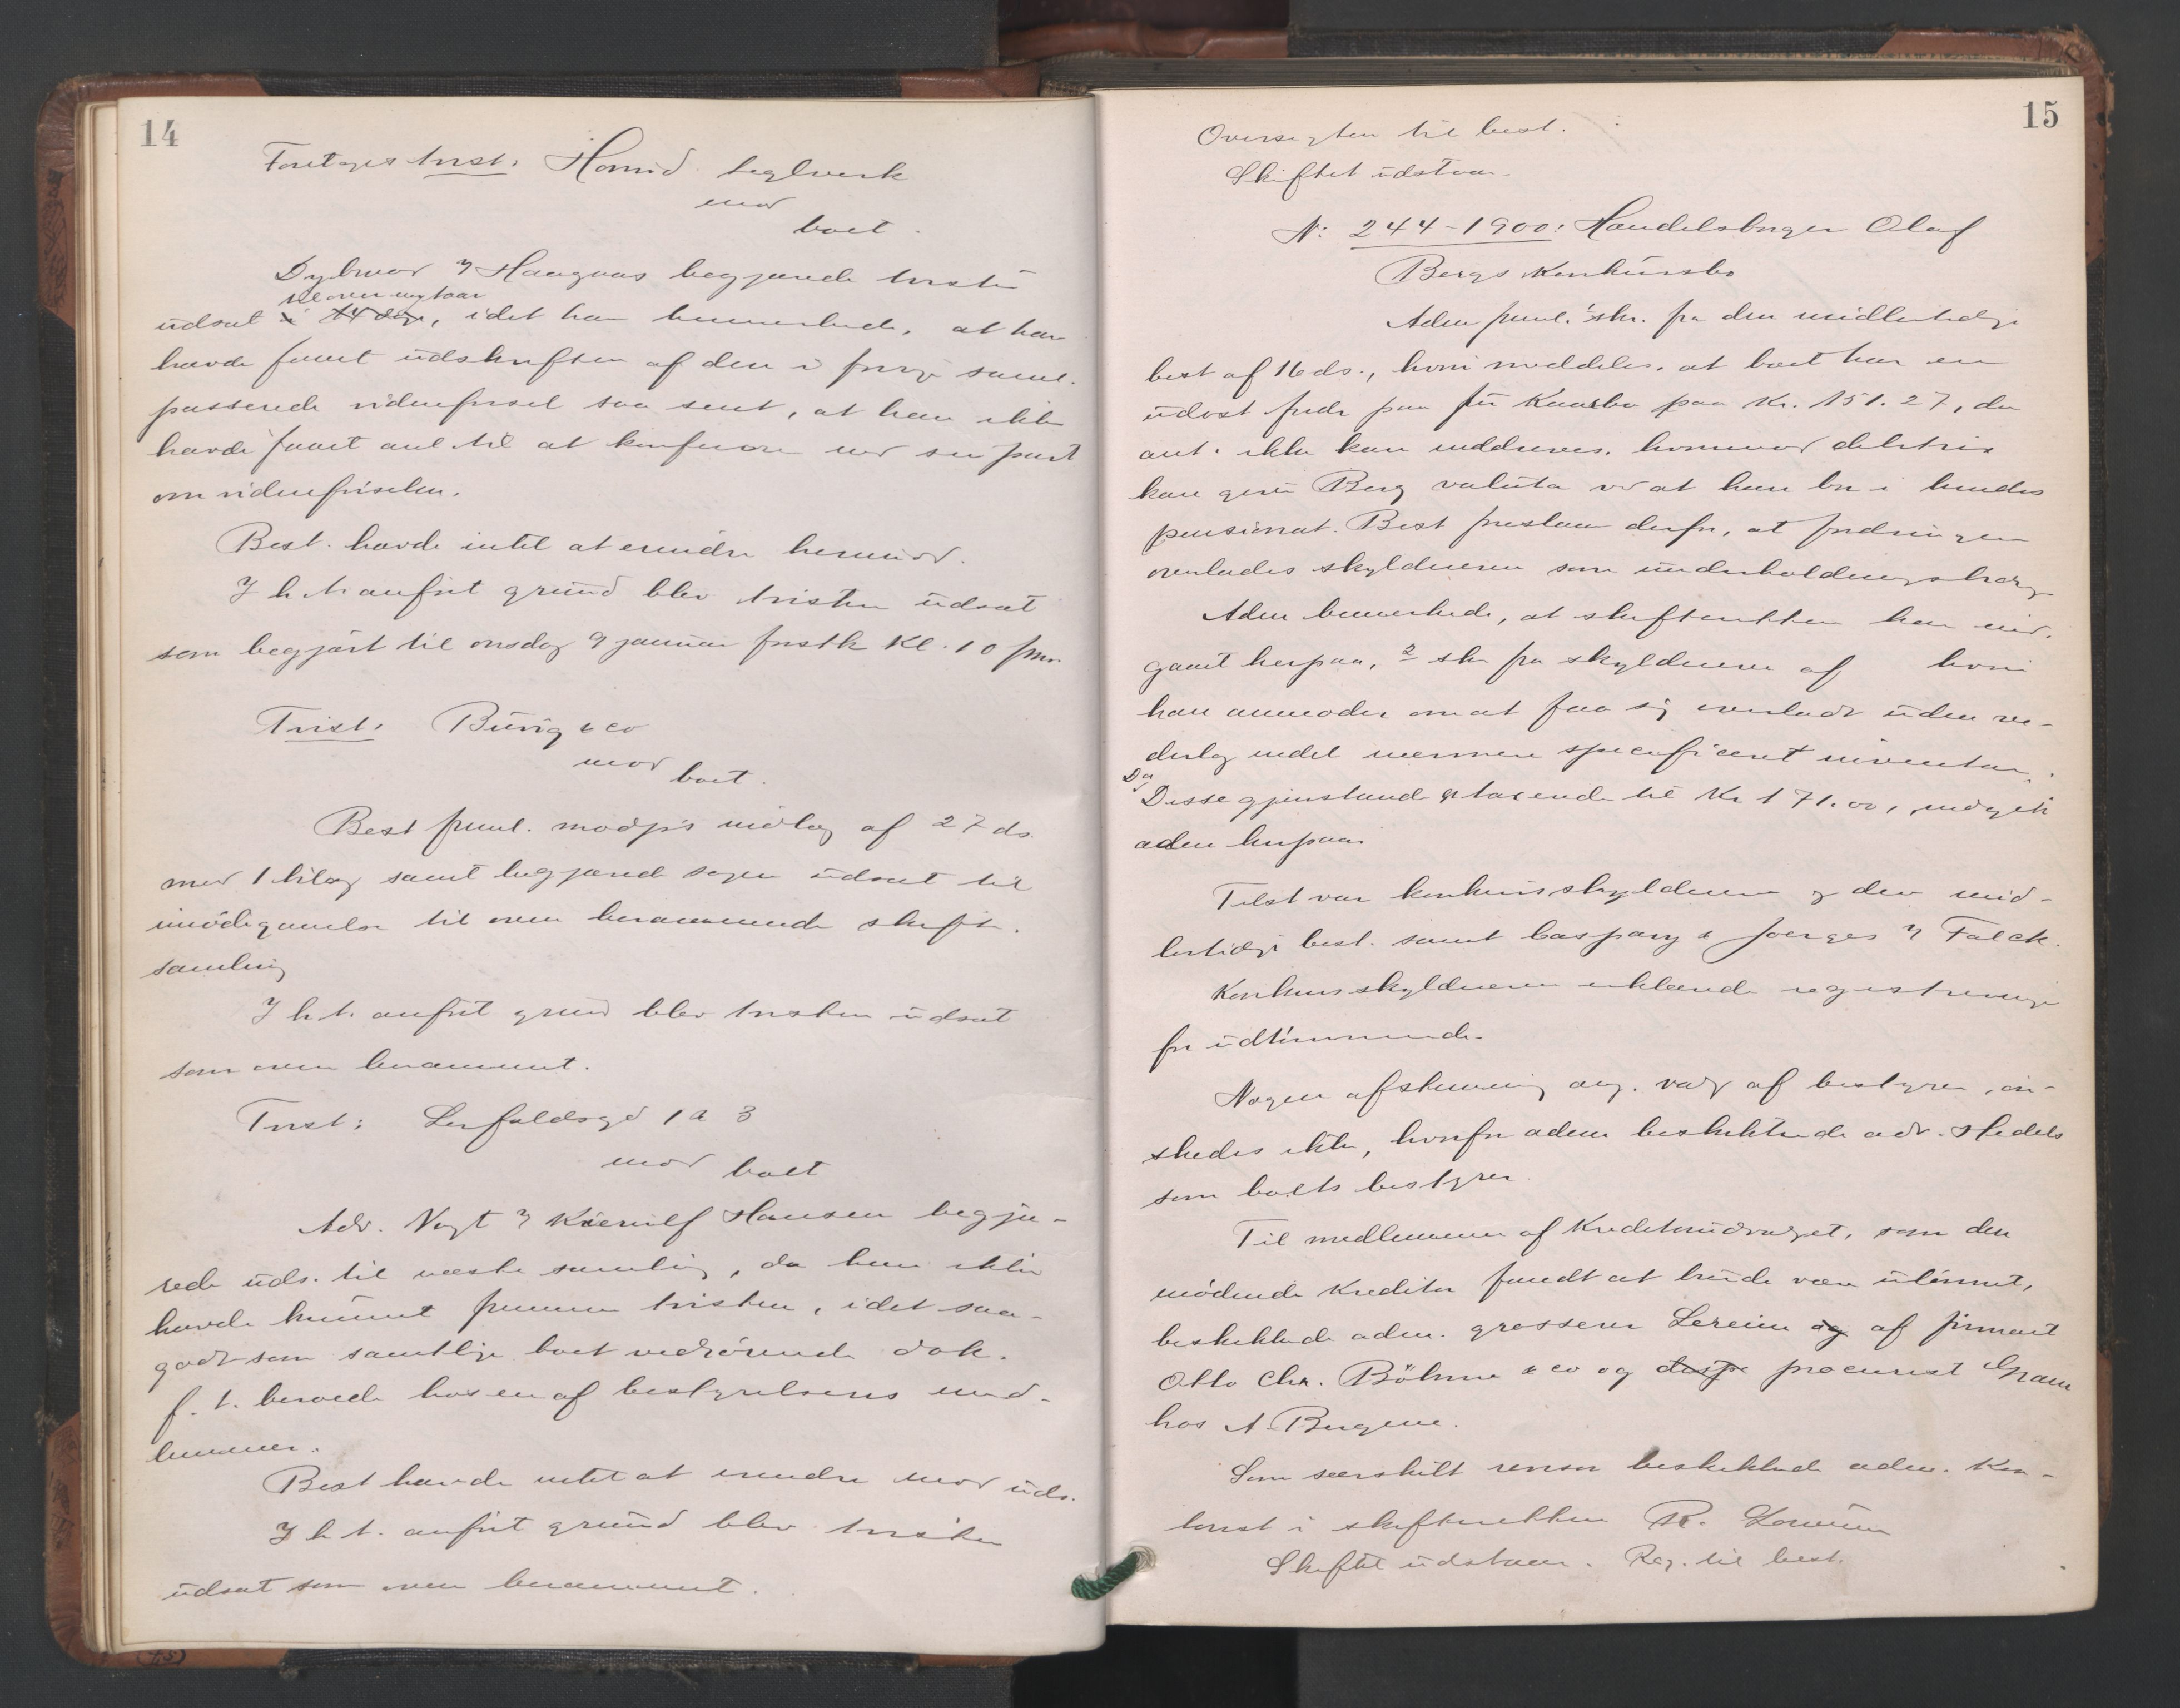 14
Foretages tvist: Homid teglverk
mod
boet.
Dybwad & Haagaas begjærede tvisten
til over nytaar
udsat i 14 dage, idet han bemerkede, at han
havde faaet udskriften af den i forrige saml.
passerede vidneførsel saa sent, at han ikke
havde faaet anl. til at konferere med sin part
om vidneførselen.
Best. havde intet at erindre herimod.
I h. t. anført grund blev tvisten udsat
som begjært til onsdag 9 januar førstk Kl. 10 fm.
Tvist: Büng & co
mod
boet.
Best freml. modp's indlæg af 27 ds.
med 1 bilag samt begjærede sagen udsat til
imødegaaelse til oven berammende skift.
samling
I h. t. anført grund blev tvisten udsat
som oven berammet.
Tvist: Lerfaldsgd 1 a 3
mod boet
Adv. Vogt & Kierulf Hansen begjæ-
rede uds. til næste samling, da han ikke
havde kunnet fremme tvisten, idet saa-
godtsom samtlige boet vedrørende dok.
f. t. beroede hos en af bestyrelsens med-
lemmer.
Best havde intet at erindre mod uds.
I h. t. anført grund blev tvisten
udsat som oven berammet.
15
Oversigten til best.
Skiftet udstaar.
N: 244-1900: Handelsborger Olaf
Bergs konkursbo
Adm freml. 1 skr. fra den midlertidige
best af 16 ds., hvori meddeles, at boet har en
udest fordr paa fru Kaarbo paa Kr. 151.27, der
ant. ikke kan inddrives, hvorimod debitrix
kan give Berg valuta ved at han bor i hendes
pensionat. Best foreslaar derfor, at fordringen
overlades skyldneren som underholdningsbidrag
Adm bemerkede, at skifteretten har ind-
gaaet herpaa, 2 skr fra skyldneren af hvori
han anmoder om at faa sig overladt uden ve-
derlag endel nærmere specificeret inventar.
Da
Disse gjenstande er taxerede til Kr 171.00, indgik
adm herpaa.
Tilst var konkursskyldneren og den mid-
lertidige best. samt Caspary & Joerges & Falck.
Konkursskyldneren erklærede registreringen
for udtømmende.
Nogen afstemning ang. valg af bestyrer øn-
skedes ikke, hvorfor adm beskikkede adv. Hedels
som boets bestyrer.
Til medlemmer af Kreditorudvalget, som den
mødende Kreditor fandt at burde være ulønnet,
beskikkede adm. grosserer Lereim og af firmaet
Otto Chr. Böhme & co og prokurist Gram
hos A. Bergene.
Som særskilt revisor beskikkede adm. Kon-
torist i skifteretten R. Lorentzen
Skiftet udstaar. Reg. til best.